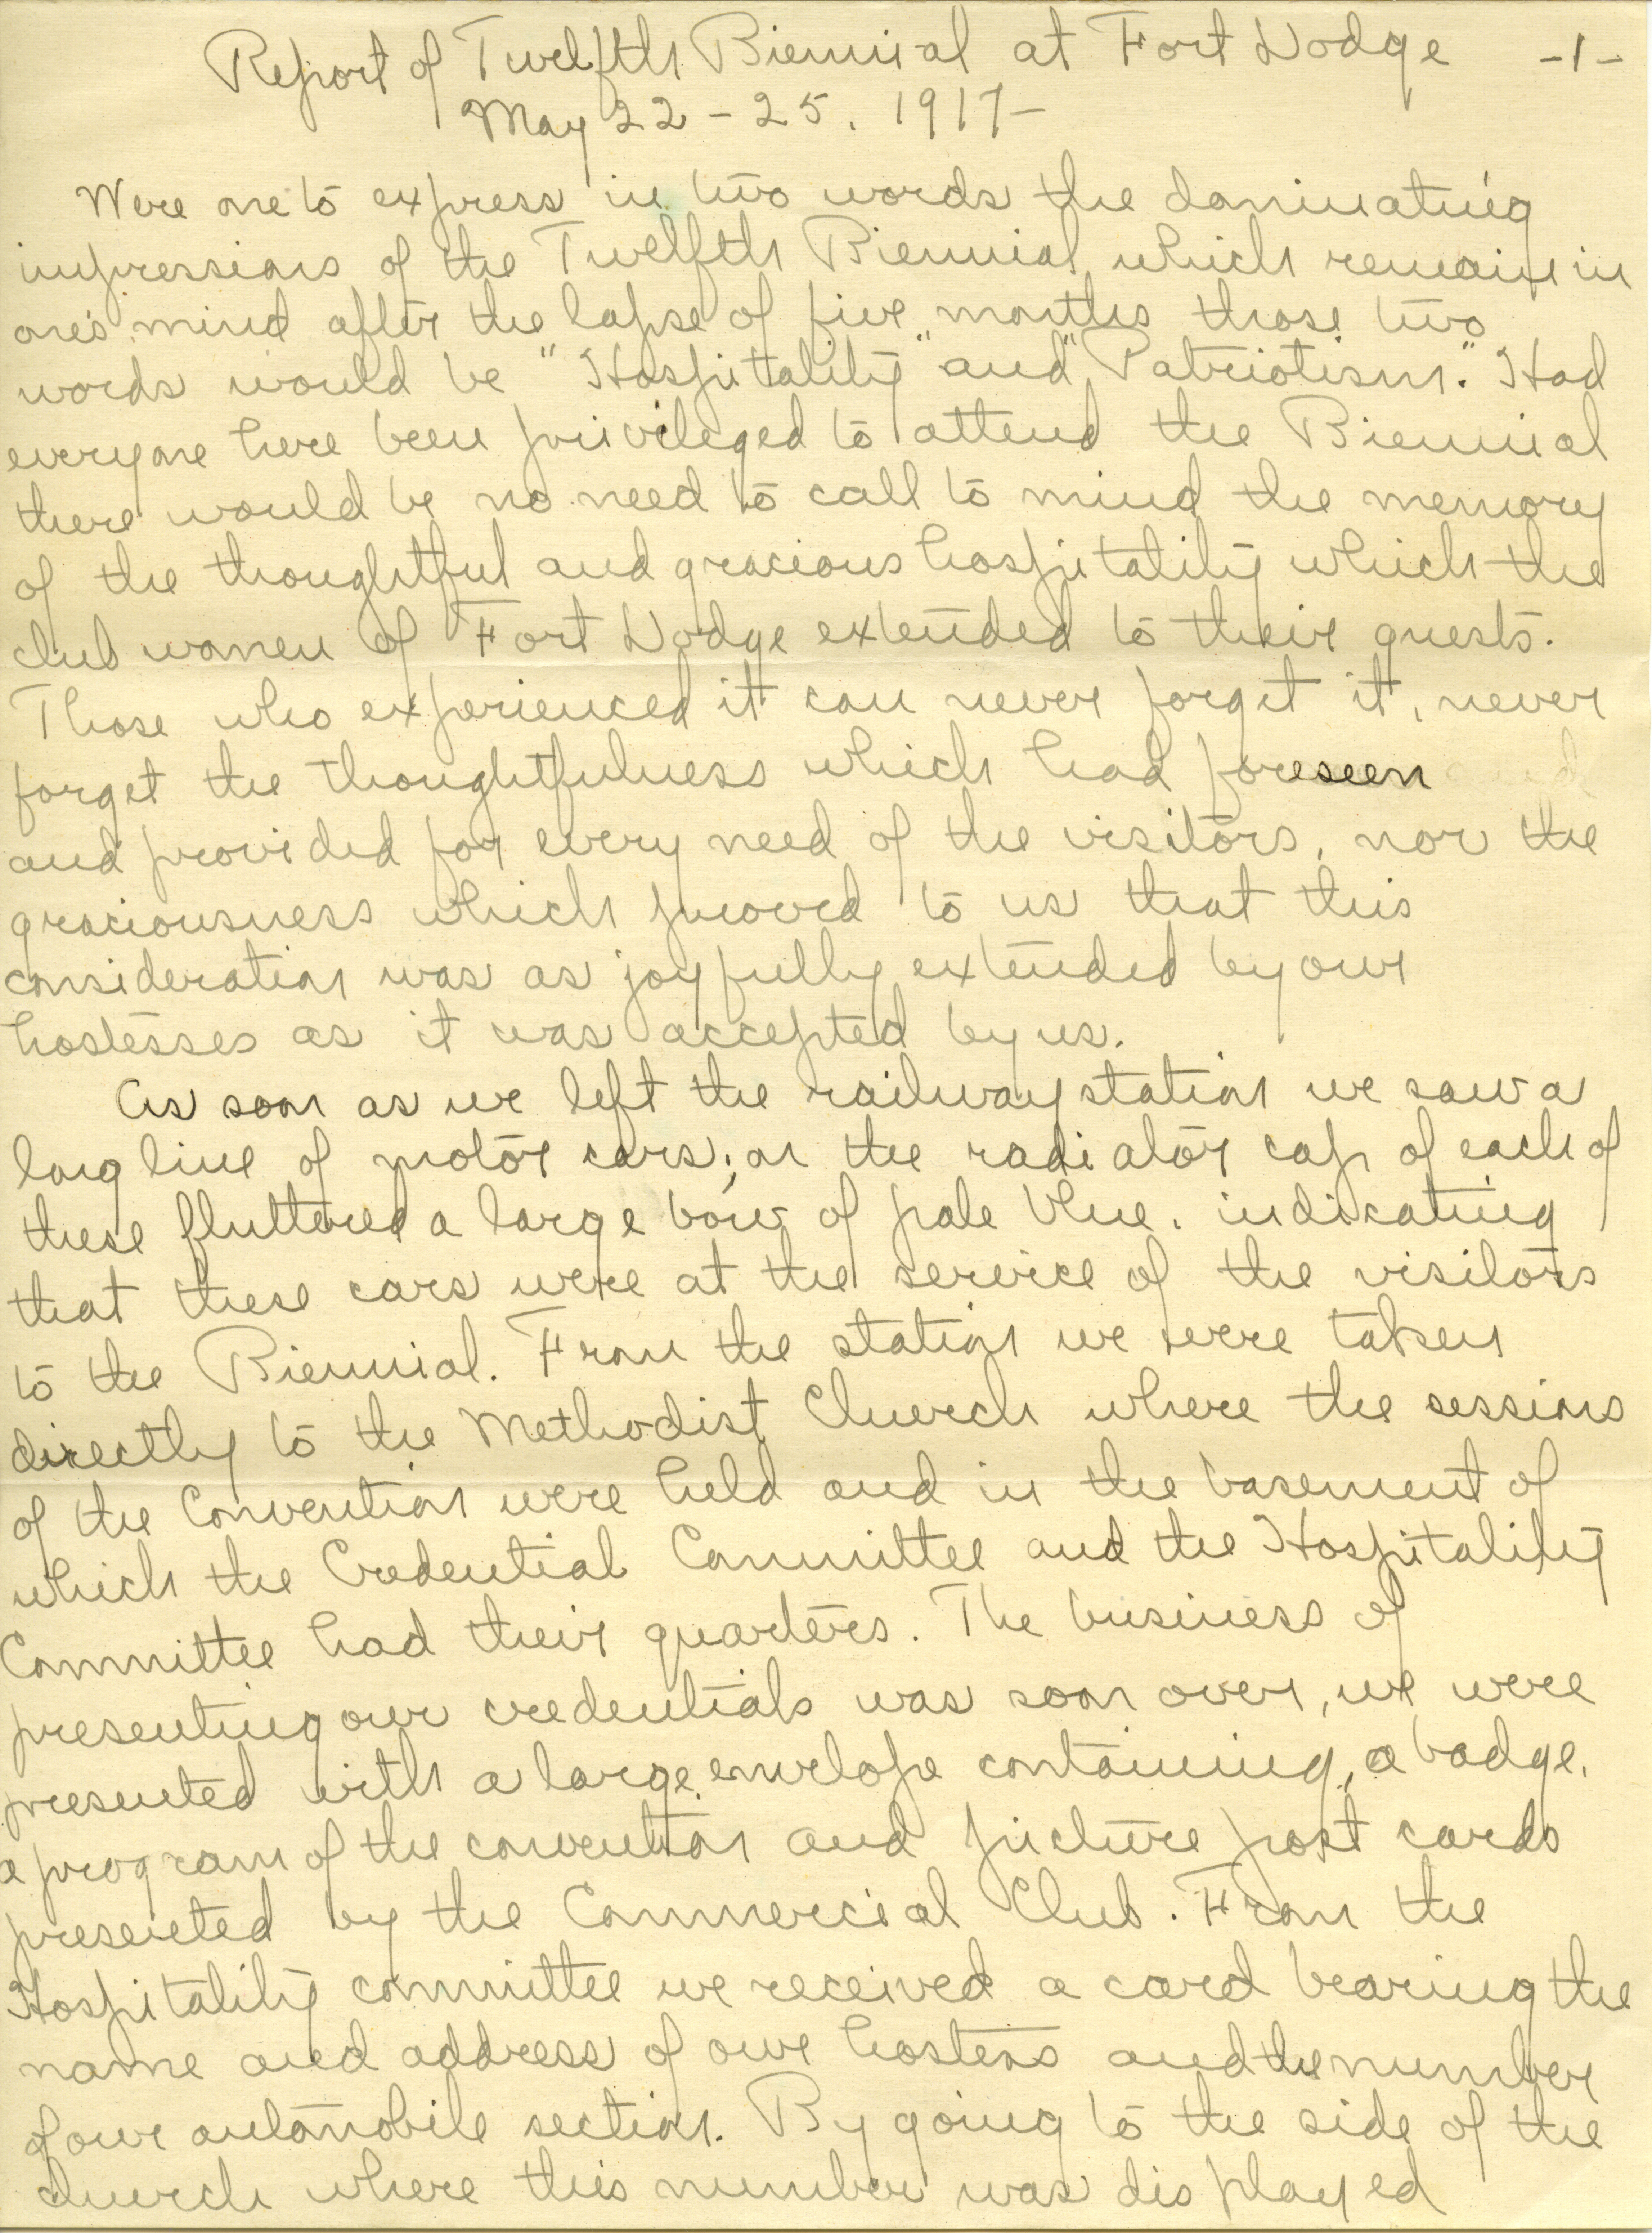 Report of Twelfth Biennial at Fort Dodge -1-
May 22-25, 1917-
Were one to express in two words the dominating
impressions of the Twelfth Biennial which remain in
one's mind after the lapse of five months those two
words would be "Hospitality" and "Patriotism." Had
everyone here been privileged to attend the Biennial
there would be no need to call to mind the memory
of the thoughtful and gracious hospitality which the
club women of Fort Dodge extended to their guests.
Those who experienced it can never forget it, never
forget the thoughtfulness which had foreseen
and provided for every need of the visitors, nor the
graciousness which proved to us that this
consideration was as joyfully extended by our
hostesses as it was accepted by us.
As soon as we left the railway station we saw a
long line of motor cars; on the radiator cap of each of
these fluttered a large bow of pale blue, indicating
that these cars were at the service of the visitors
to the Biennial. From the station we were taken
directly to the Methodist Church where the sessions
of the Convention were held and in the basement of
which the Credential Committee and the Hospitality
Committee had their quarters. The business of
presenting our credentials was soon over, we were
presented with a large envelope containing, a badge,
a program of the convention and picture post cards
presented by the Commercial Club. From the
Hospitality committee we received a card bearing the
name and address of our hostess and the number
of our automobile section. By going to the side of the
church where this number was displayed